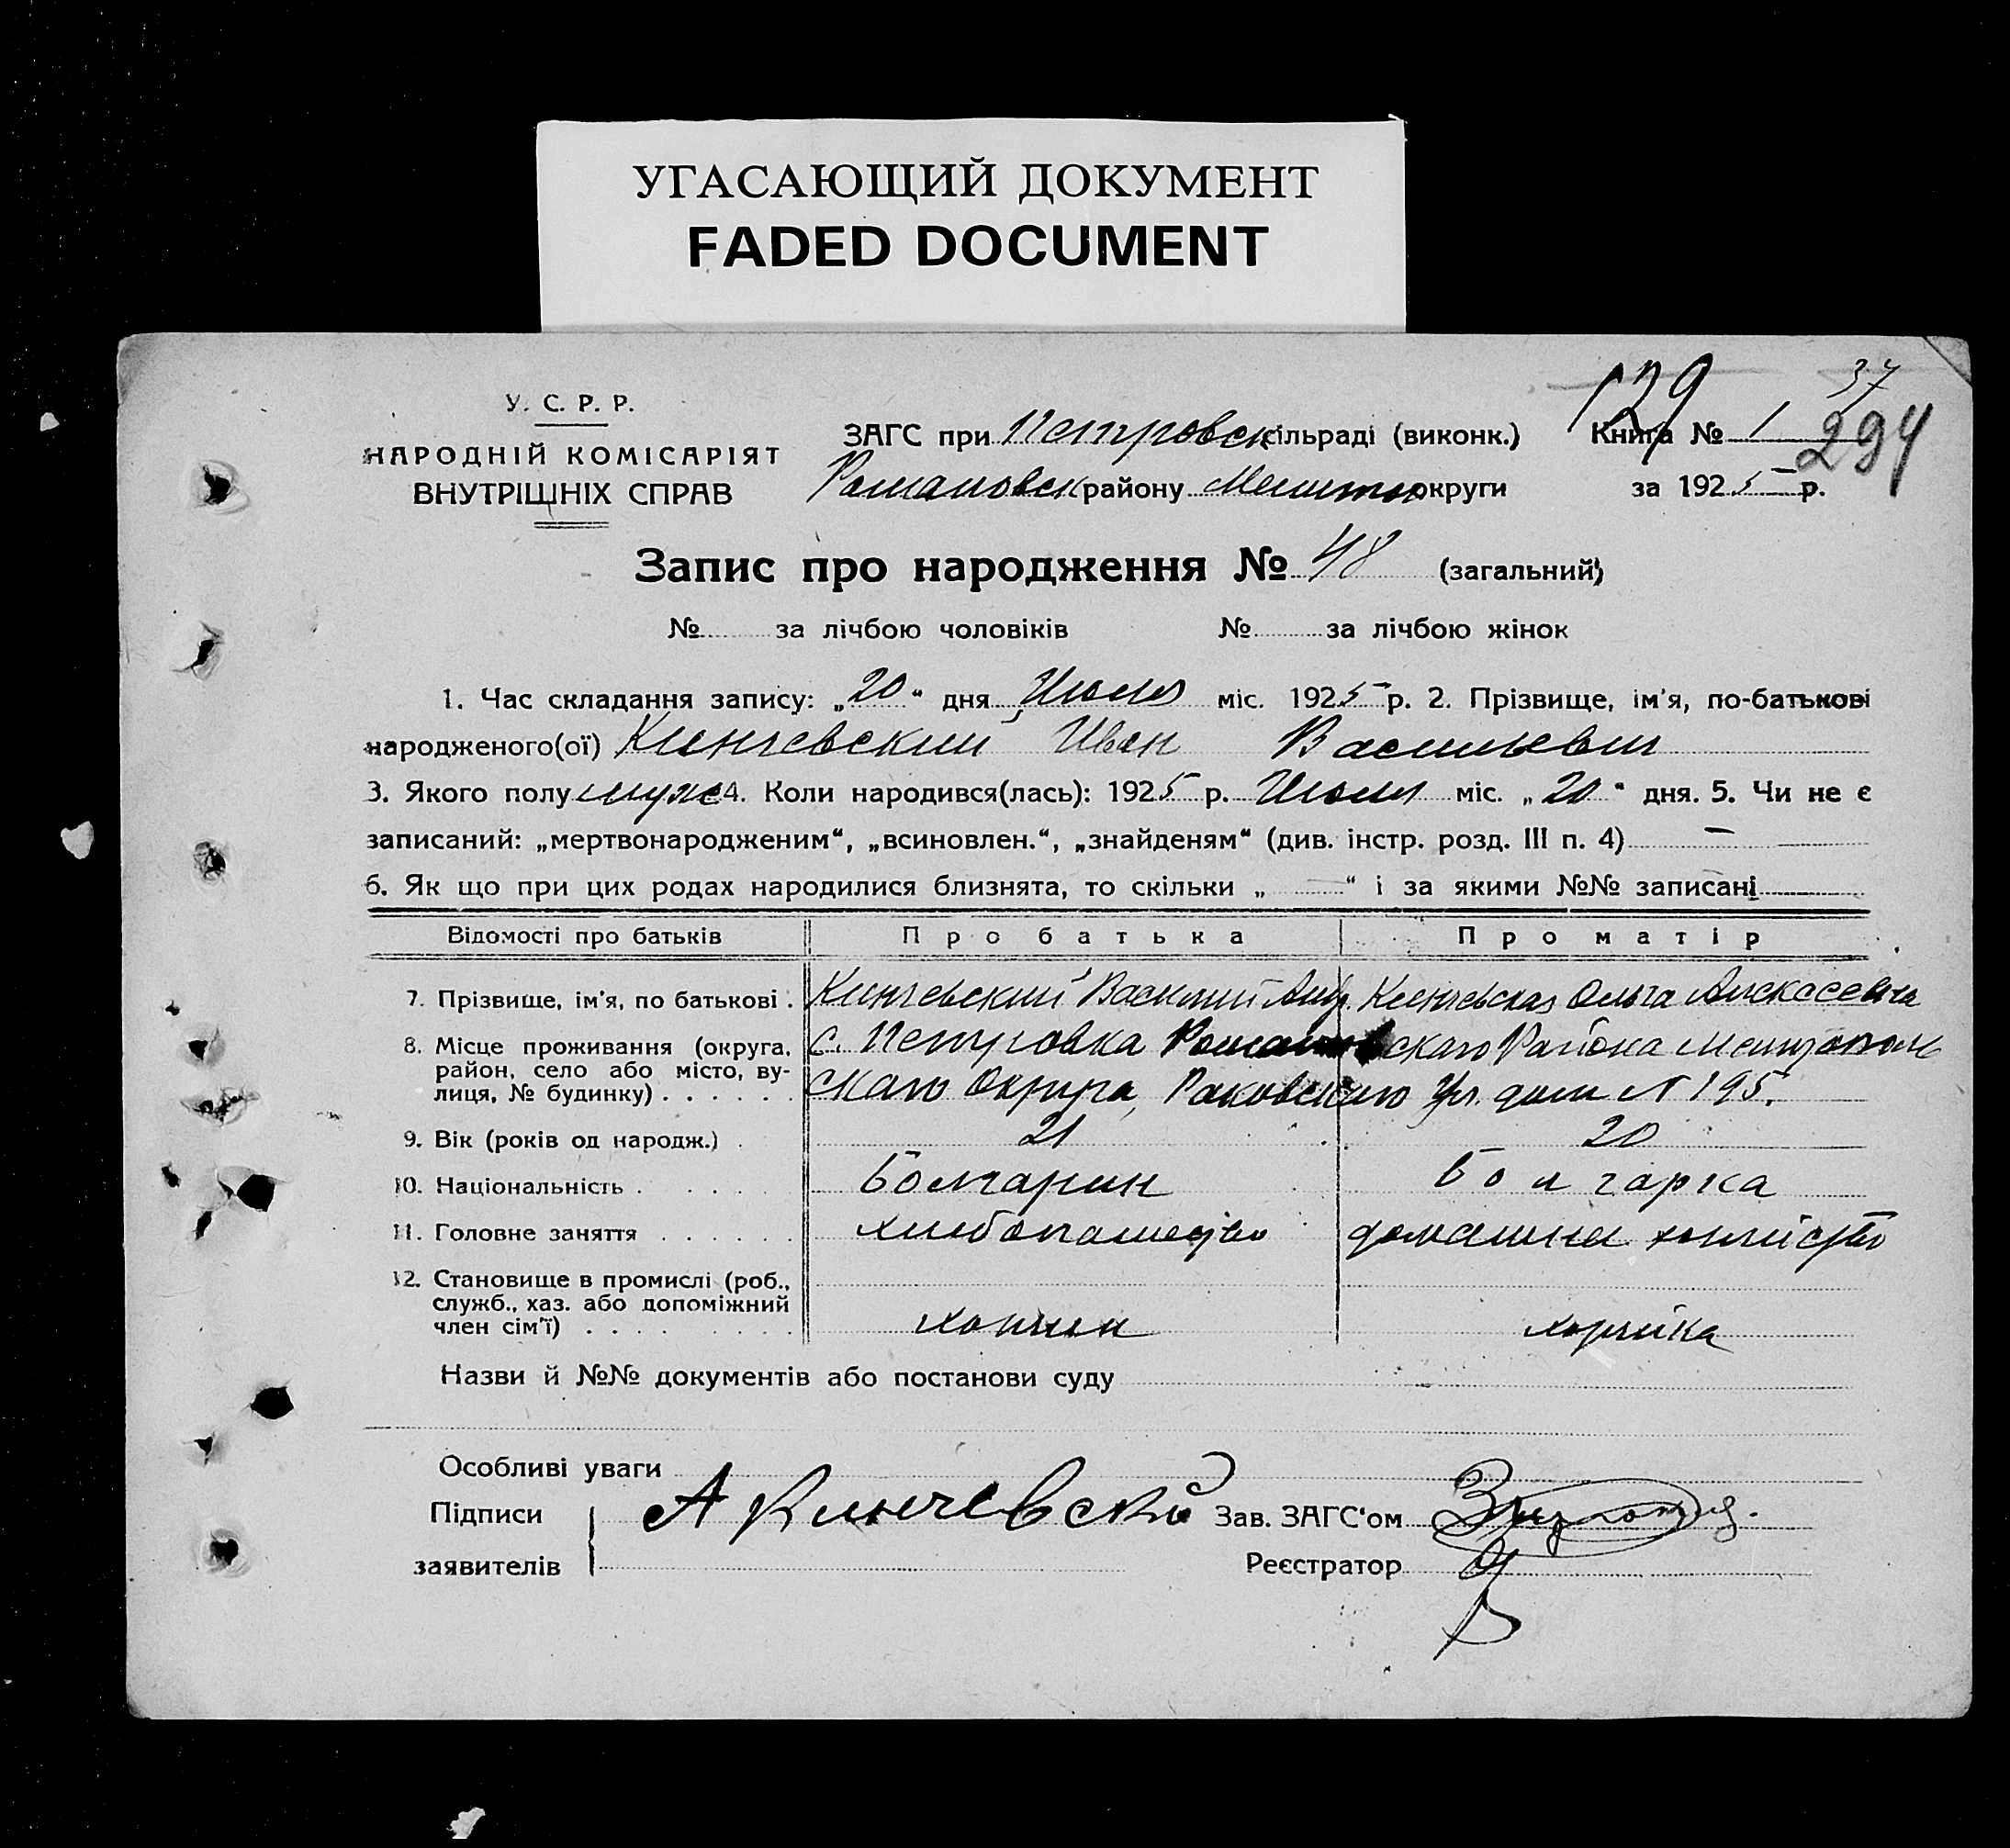 УГАСАЮЩИЙ ДОКУМЕНТ
FADED DOCUMENT
У. С. Р. Р.
НАРОДНІЙ КОМІСАРІЯТ
ВНУТРІШНІХ СПРАВ
129 37
ЗАГС при Петровск сільраді (виконк.) Книга № 1 294
Романовск району округи за 1925 р.
Запис про народження № 48 (загальний)
№ за лічбою чоловіків № за лічбою жінок
1. Час складання запису: „20“ дня Июля міс. 1925 р. 2. Прізвище, ім'я, по-батькові
народженого(ої) Кинчевский Иван Васильевич
3. Якого полу муж 4. Коли народився(лась): 1925 р. Июля міс. „20“ дня. 5. Чи не є
записаний: „мертвонародженим“, „всиновлен.“, „знайденям“ (див. інстр. розд. III п. 4) —
6. Як що при цих родах народилися близнята, то скільки „ — “ і за якими №№ записані
Відомості про батьків Про батька Про матір
7. Прізвище, ім'я, по батькові . Кинчевский Василий Кинчевская Ольга Алексеевна
8. Місце проживання (округа, с. Петровка Романовскаго Района Мелитополь
район, село або місто, ву-
лиця, № будинку) . . . . . . скаго Округа, Раковского Ул. дом № 195.
9. Вік (років од народж.) . 21 20
10. Національність . . . . . Болгарин болгарка
11. Головне заняття . . . . . . домашне
12. Становище в промислі (роб.,
служб., хаз. або допоміжний
член сім'ї) . . . . . . . . .
Назви й №№ документів або постанови суду
Особливі уваги
Підписи А Кинчевский Зав. ЗАГС'ом
заявителів Реєстратор